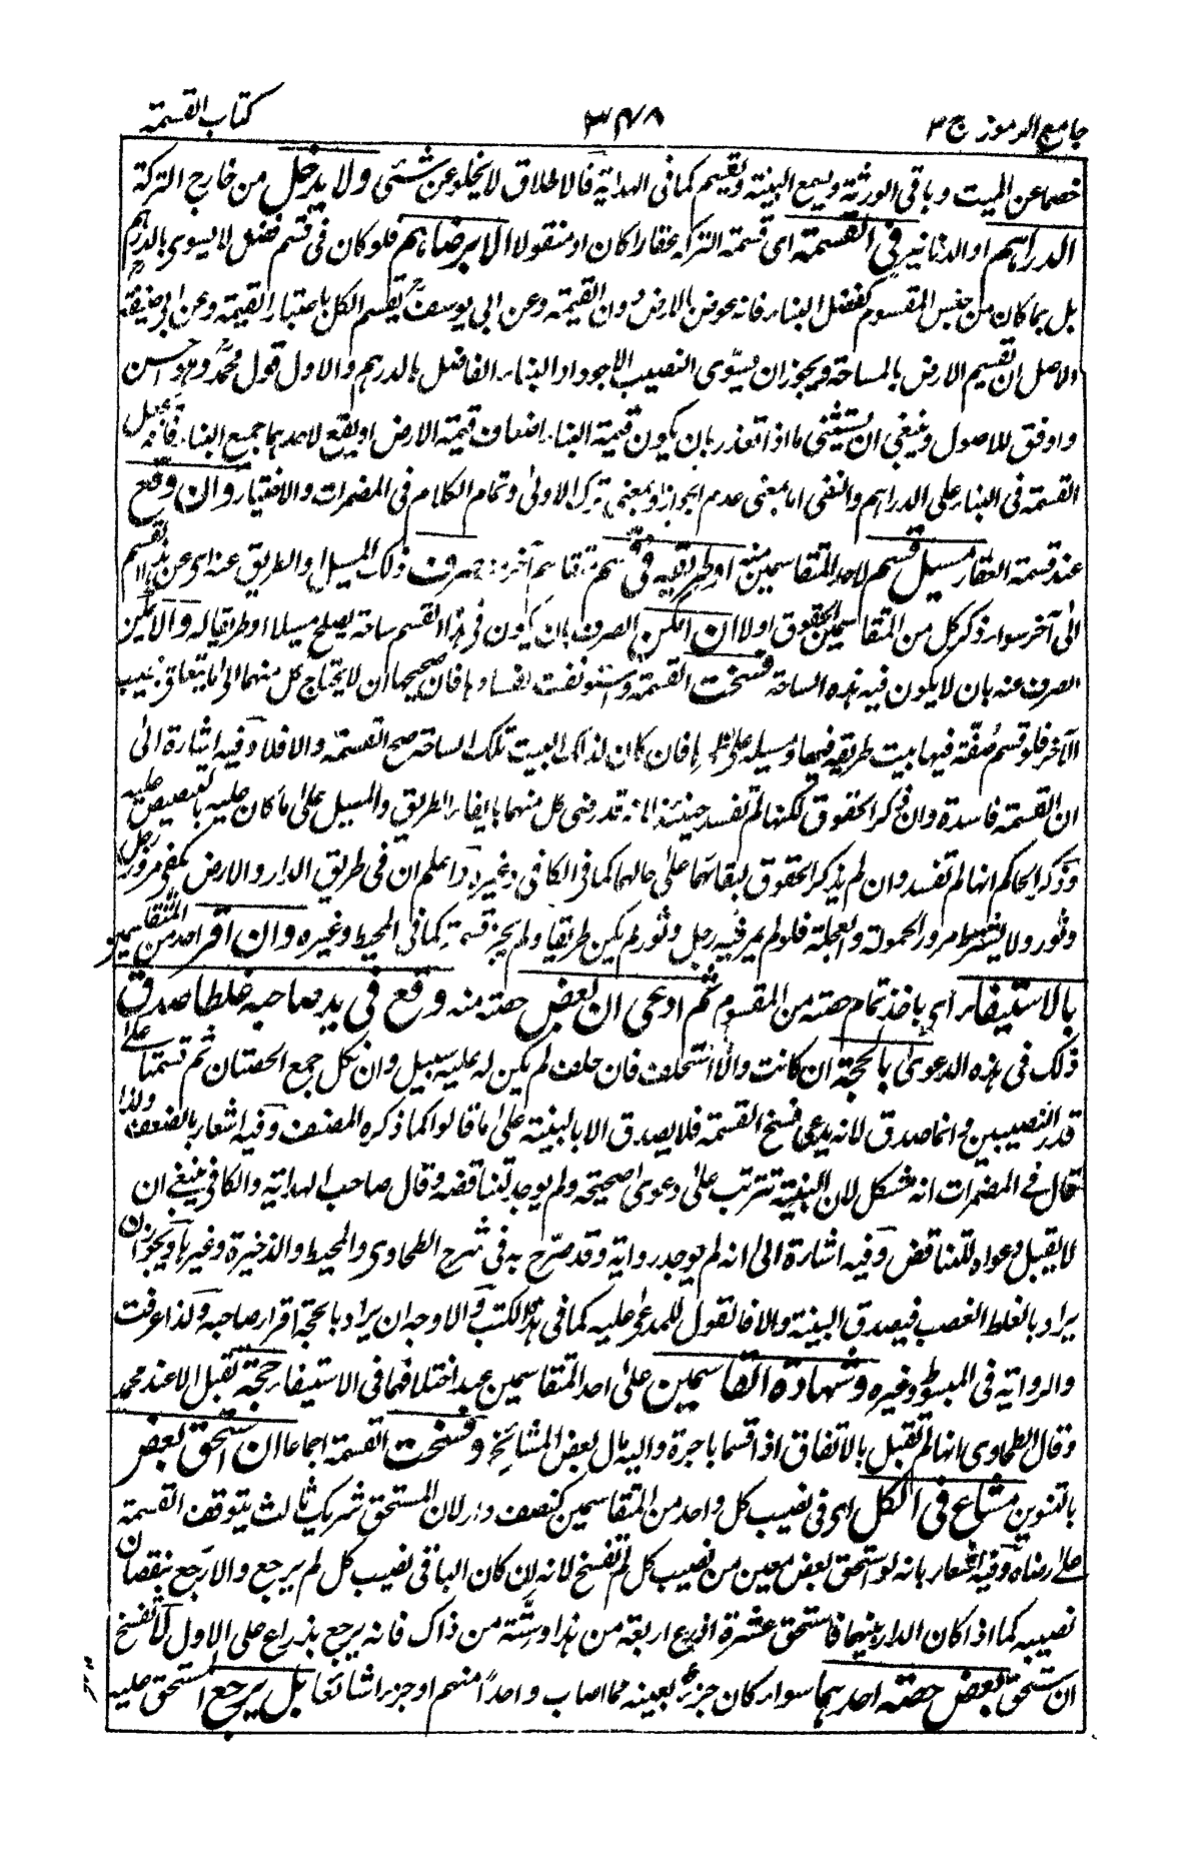 جامع الرموز ج ٣ ٣٤٨ كتاب القسمة
خصما عن الميت وباقى الورثة ويسمع البينة ويقسم كما فى الهداية فالاطلاق لا يخلو عن شئى ولا يدخل من خارج التركة
الدراهم او الدنانير فى القسمة اى قسمة التركة عقارا كان او منقولا الا برضاهم فلو كان فى قسم فضل لا يسوى بالدراهم
بل بما كان من جنس المقسوم كفضل البناء فانه بعوض بالارض دون القيمة وعن ابى يوسف يقسم الكل باعتبار القيمة وعن ابى حنيفة
الاصل ان تقسيم الارض بالمساحة ويجوز ان يسوى النصيب الاجود او البناء الفاضل بالدرهم والاول قول محمد وهو احسن
واوفق للاصول وينبغى ان يستثنى ما اذا تعذر بان يكون قيمة البناء اضعاف قيمة الارض او يقع لاحدهما جميع البناء فانه يجعل
القسمة فى البناء على الدراهم والنفى اما بمعنى عدم الجواز او بمعنى ترك الاولى وتمام الكلام فى المضمرات والاختيار وان وقع
عند قسمة العقار مسيل قسم لاحد المتقاسمين منه او طريقه فى قسم متقاسم آخر صرف ذلك المسيل والطريق عنه اى عن
الى آخر سواء ذكر كل من المتقاسمين الحقوق اولا ان امكن الصرف بان يكون فى هذا القسم ساحة يصلح مسيلا او طريقا له والا يمكن
الصرف عنه بان لا يكون فيه هذه الساحة فسخت القسمة واستونفت لفسادها فان صحيحها ان لا يحتاج كل منهما الى ما يتعلق بنصيب
الآخر فلو قسم صفة فيها بيت طريقه فيها ومسيله على فان كان لذلك البيت تلك الساحة صح القسمة والا فلا وفيه اشارة الى
ان القسمة فاسدة وان ذكر الحقوق لكنها لم تفسد حينئذ لانه قد رضى كل منهما بايفاء الطريق والمسيل على ما كان عليه بالتنصيص عليه
وذكر الحاكم انها لم تفسد وان لم يذكر الحقوق لبقائهما على حالهما كما فى الكافى وغيره واعلم ان فى طريق الدار والارض يكفى مرور رجل
وثور ولا يشترط مرور الحمولة والعجلة فلو لم يمر فيه رجل وثور لم يكن طريقا ولم يجز قسمته كما فى المحيط وغيره وان اقر احد من المتقاسمين
بالاستيفاء اى باخذ تمام حصته من المقسوم ثم ادعى ان بعض حصته منه وقع فى يد صاحبه غلطا صدق
ذلك فى هذه الدعوى بالحجة ان كانت والا استحلف فان حلف لم يكن له عليه سبيل وان نكل جمع الحصتان ثم قسمتا على
قدر النصيبين وانما صدق لانه يدعى فسخ القسمة فلا يصدق الا بالبينة على ما قالوا كما ذكره المصنف وفيه اشعار بالضعف ولذا
قال فى المضمرات انه مشكل لان البينة تترتب على دعوى صحيحة ولم يوجد لتناقضه وقال صاحب الهداية والكافى ينبغى ان
لا يقبل دعواه للتناقض وفيه اشارة الى انه لم يوجد رواية وقد صرح به فى شرح الطحاوى والمحيط والذخيرة وغيرها ويجوز ان
يراد بالغلط الغصب فيصدق البينة والا فالقول للمدعى عليه كما فى هذه الكتب والاوجه ان يراد بالحجة اقرار صاحبه وكذا عرفت
والرواية فى المبسوط وغيره وشهادة القاسمين على احد المتقاسمين عند اختلافهما فى الاستيفاء حجة تقبل الا عند محمد
وقال الطحاوى انها لم تقبل بالاتفاق اذا قسما باجرة واليه مال بعض المشائخ وفسخت القسمة اجماعا ان استحق بعض
بالتنوين مشاع فى الكل اى فى نصيب كل واحد من المتقاسمين كنصف دار لان المستحق شريك ثالث يتوقف القسمة
على رضاه وفيه اشعار بانه لو استحق بعض معين من نصيب كل لم تفسخ لانه ان كان الباقى نصيب كل لم يرجع والا رجع بنقصان
نصيبه كما اذا كان الدار بينهما فاستحق عشرة اذرع اربعة من هذا وستة من ذاك فانه يرجع بذراع على الاول لا تفسخ
ان يستحق بعض حصته احدهما سواء كان جزءا بعينه مما اصاب واحدا منهم او جزءا شائعا بل يرجع المستحق عليه